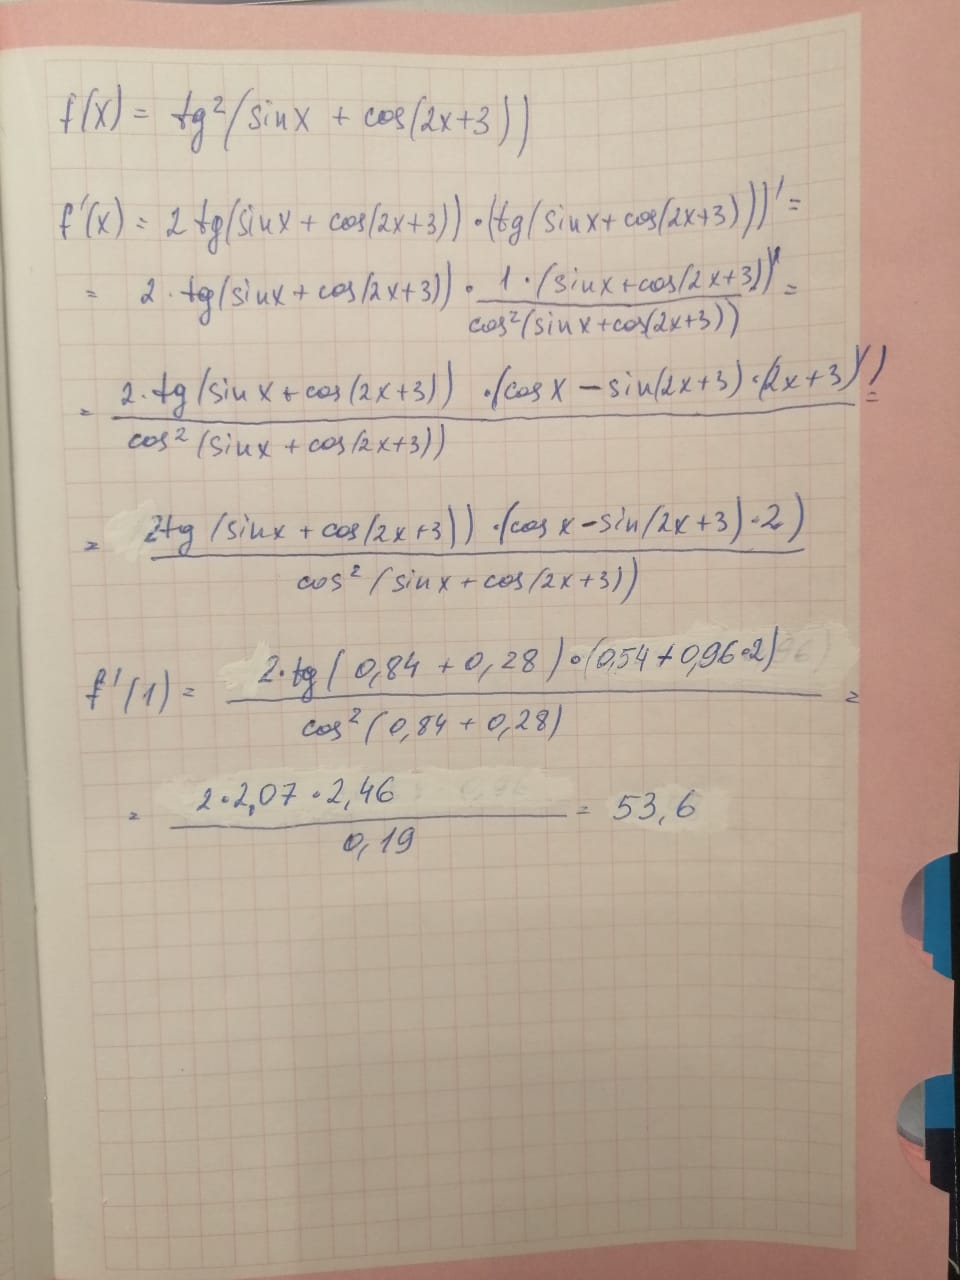 f(x) = tg²(sinx + cos(2x+3))
f'(x) = 2 tg(sinx + cos(2x+3)) · (tg(sinx+cos(2x+3)))' =
= 2 · tg(sinx + cos(2x+3)) · 1 · (sinx+cos(2x+3))' / cos²(sinx+cos(2x+3)) =
= 2 · tg(sinx + cos(2x+3)) · (cosx − sin(2x+3) · (2x+3)') / cos²(sinx + cos(2x+3)) =
= 2tg(sinx + cos(2x+3)) · (cosx − sin(2x+3) · 2) / cos²(sinx + cos(2x+3))
f'(1) = 2 · tg(0,84 + 0,28) · (0,54 + 0,96 · 2) / cos²(0,84 + 0,28) =
= 2 · 2,07 · 2,46 / 0,19 = 53,6